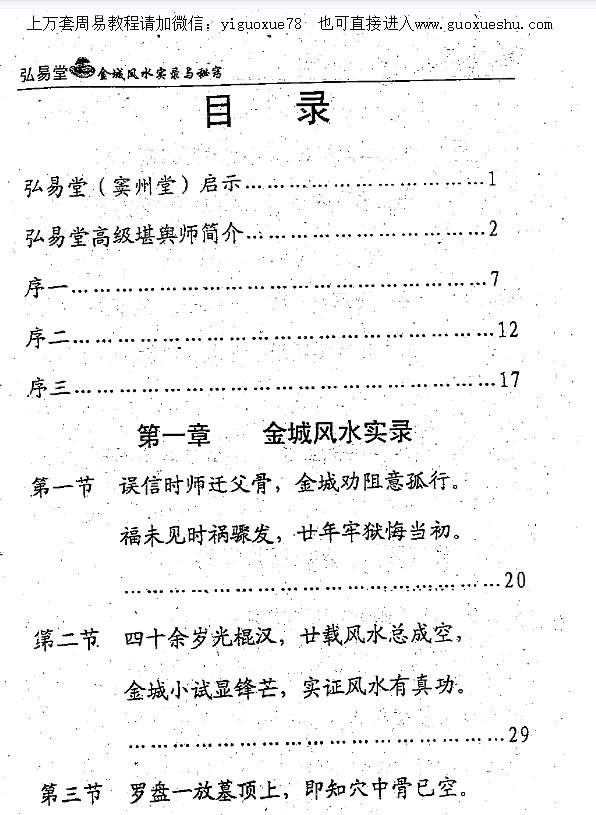 上万套周易教程请加微信：yiguoxue78 也可直接进入www.guoxueshu.com
弘易堂 金城风水实录与秘窍
目 录
弘易堂（窦州堂）启示…………………………1
弘易堂高级堪舆师简介…………………………2
序一…………………………………………………7
序二…………………………………………………12
序三…………………………………………………17
第一章 金城风水实录
第一节 误信时师迁父骨，金城劝阻意孤行。
福未见时祸骤发，廿年牢狱悔当初。
……………………………………………20
第二节 四十余岁光棍汉，廿载风水总成空，
金城小试显锋芒，实证风水有真功。
……………………………………………29
第三节 罗盘一放墓顶上，即知穴中骨已空。